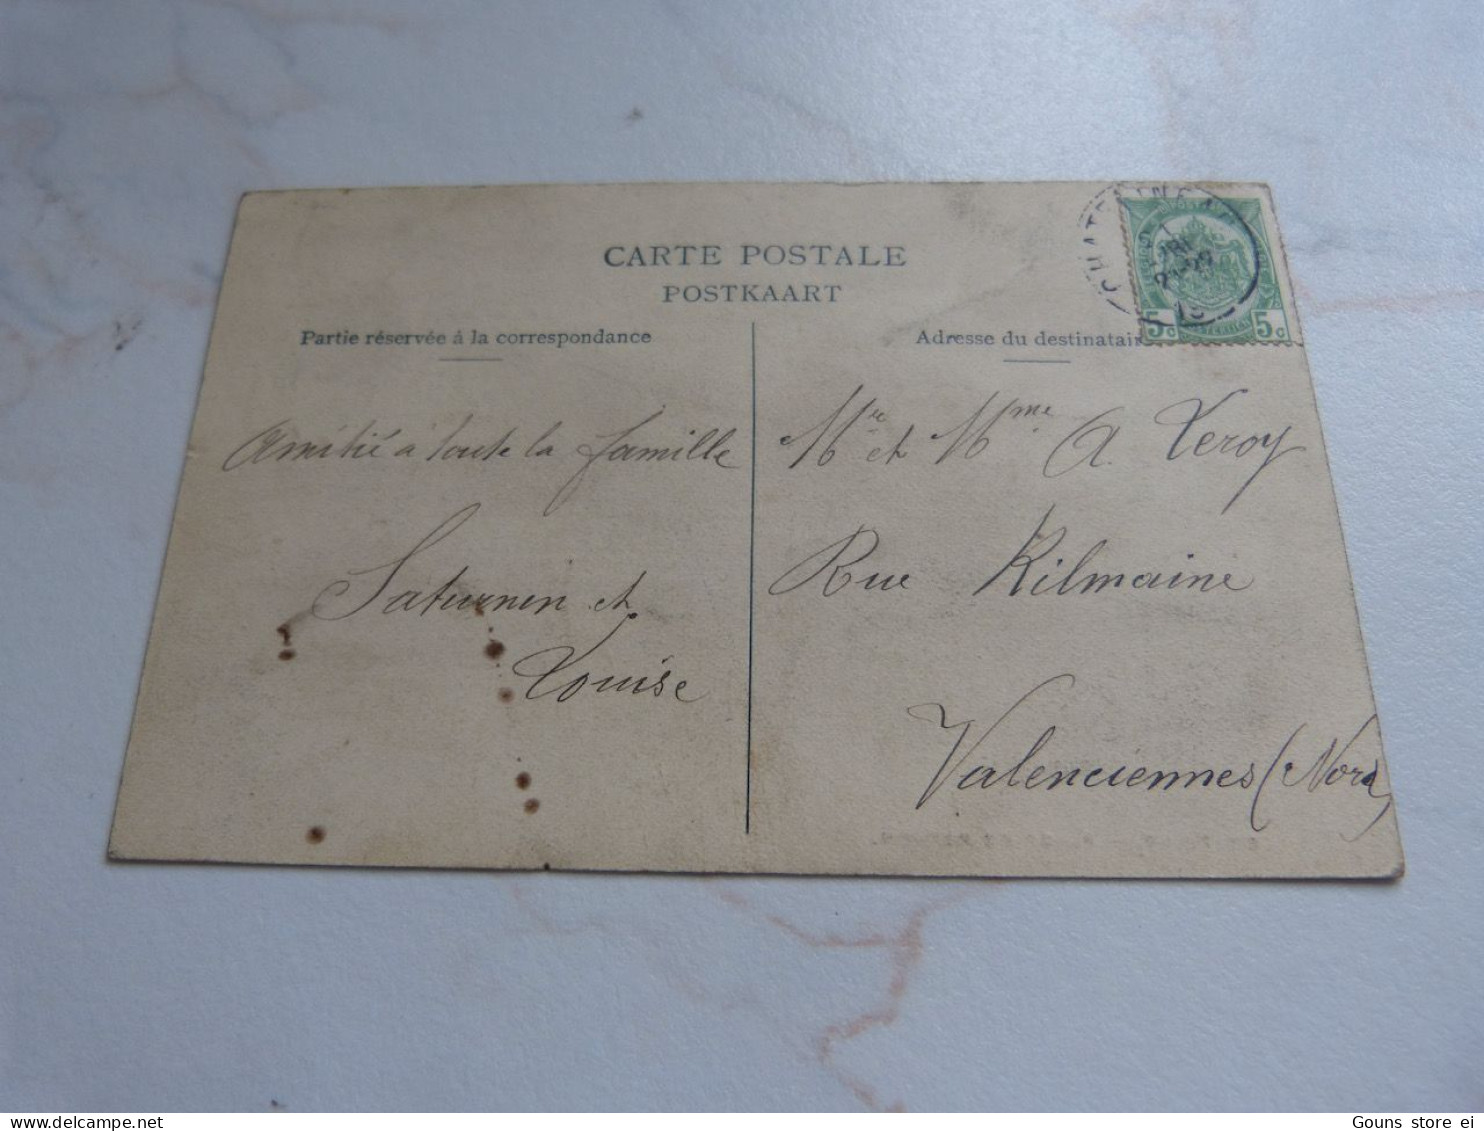 CARTE POSTALE
POSTKAART
Partie réservée à la correspondance
Adresse du destinatair
5c 5c
Amitié à toute la famille
Saturnin et
Louise
Mr et Mme A. Leroy
Rue Kilmaine
Valenciennes (Nord)
Gouns store ei